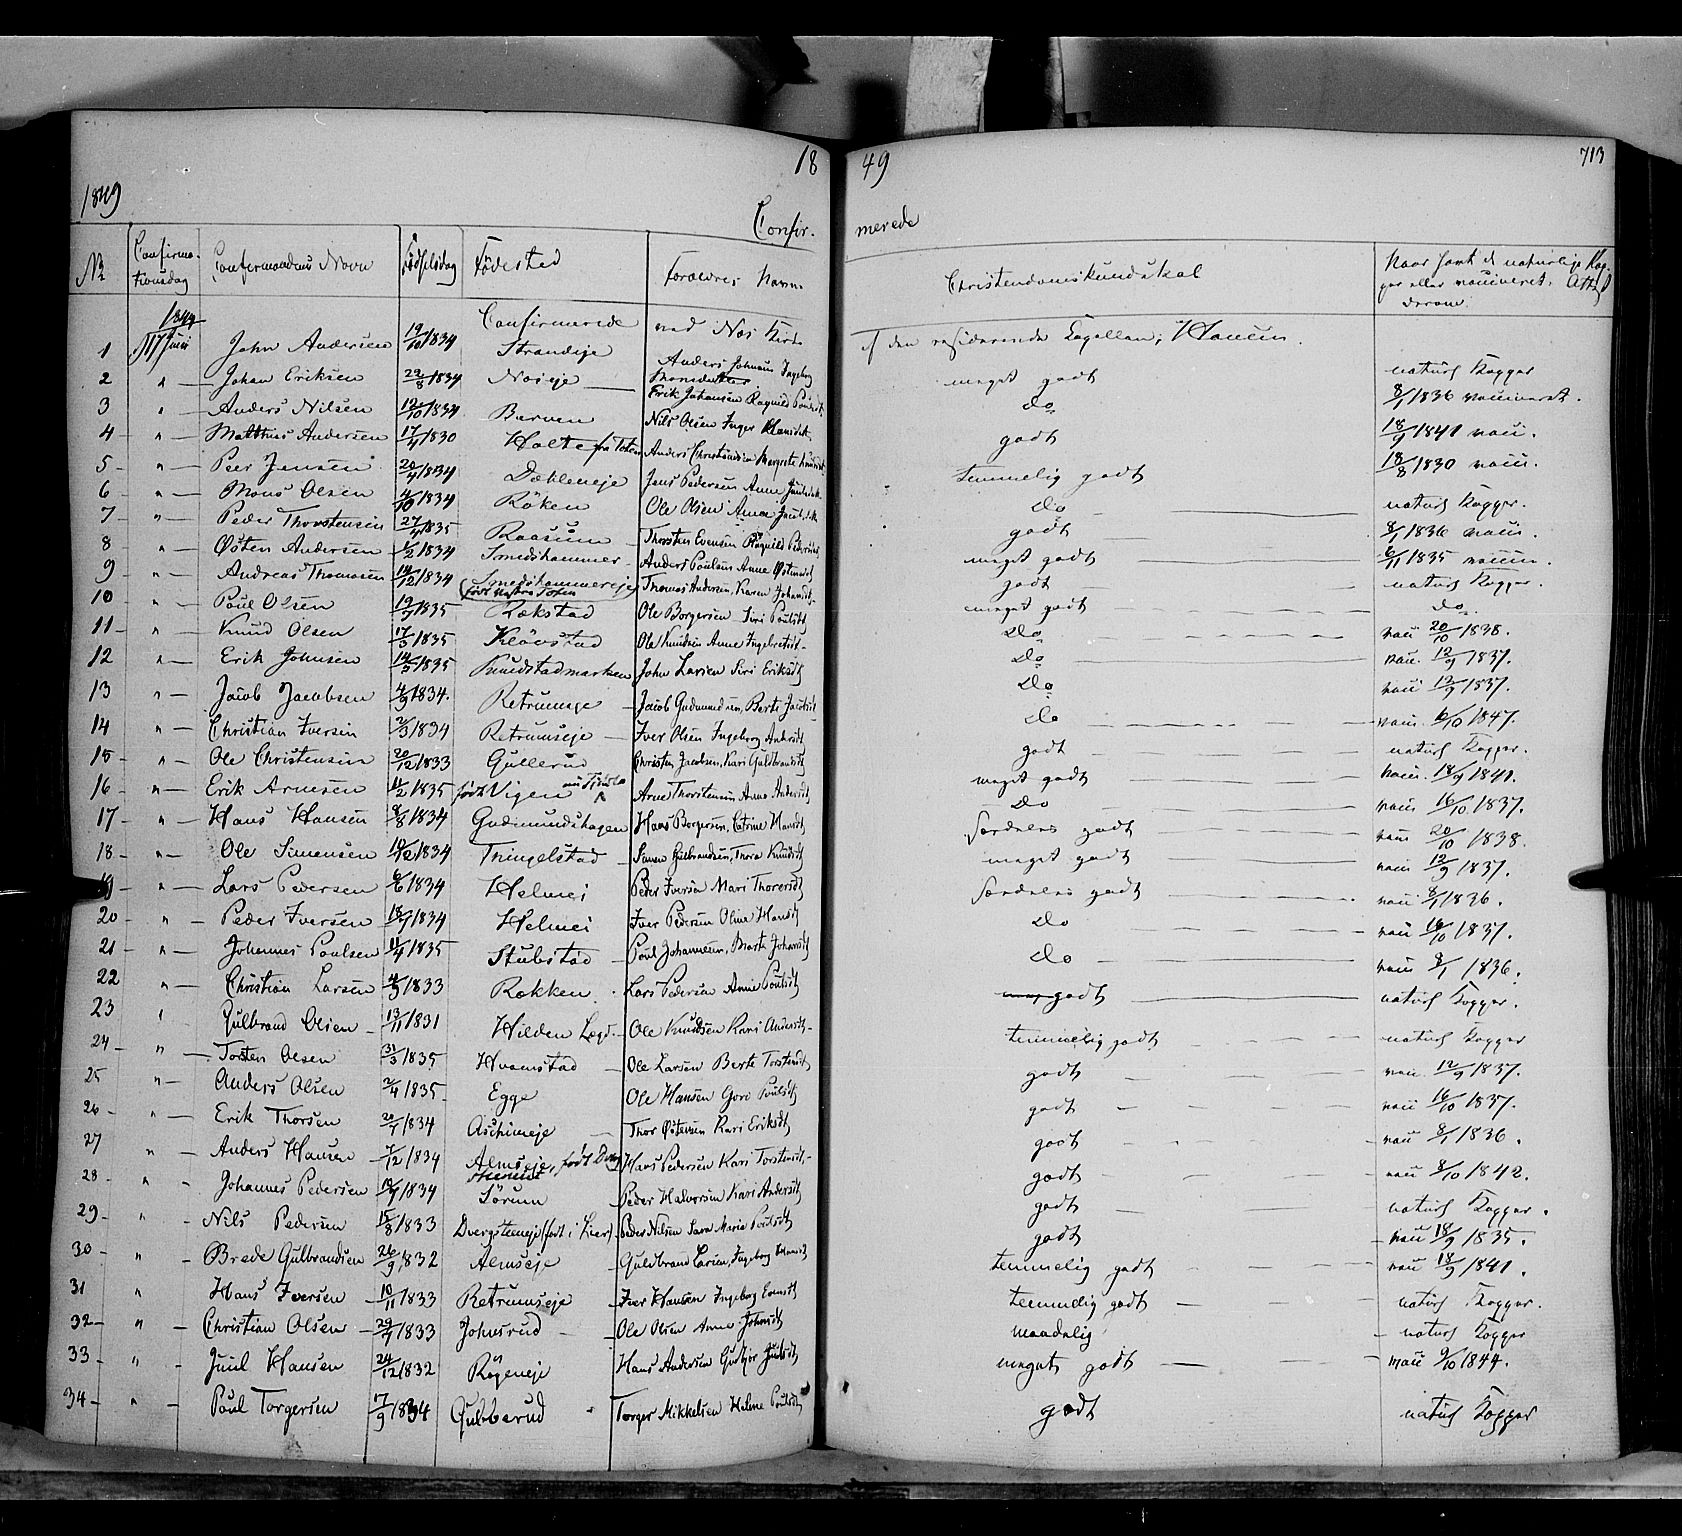 18 49 713
1849
Confir- merede
No Confirmationsdag Confirmandens Navn Fødselsdag Fødested Foraldres Navn Christendomskundskab Naar havt de naturlige Kopper eller vaccineret. Attest derom.
1849 Confirmerede ved Næs Kirke af den residerende Capellan, Hansen.
1 17 Juni John Andersen 19/10 1834 Strandeje Anders Johnsen Ingeborg meget godt naturl Kopper
2 " Johan Eriksen 23/8 1834 Næseje Erik Johansen Ragnild Poulsdt do 8/1 1836 vaccineret.
3 " Anders Nilsen 1834 Barven Nils Olsen Inger Hansdt godt 18/9 1841 vacc.
4 " Matthias Andersen 17/4 1830 Holte fra Toten Anders Christensen Margrete temmelig godt 18/8 1830 vacc.
5 " Peer Jensen 20/4 1834 Dækleneje Jens Pedersen Anne do naturl Kopper.
6 " Mons Olsen 4/10 1834 Röken Ole Olsen Anne godt 8/1 1836 vacc.
7 " Peder Thorstensen 27/4 1835 Raasum Thorsten Evensen Ragnild Pedersdt meget godt 1835 vaccin.
8 " Østen Andersen 1/2 1834 Smedshammer Anders Poulsen Anne Østensdt godt naturl Kopper.
9 " Andreas Thomasen 14/12 1834 Smedshammereje (født Vestre Toten Thomas Andersen, Karen Johansdt meget godt do.
10 " Poul Olsen 1835 Rækstad Ole Borgersen Siri Poulsdt do vacc 20/10 1838.
11 " Knud Olsen 17/3 1835 Kløvstad Ole Knudsen Anne Ingebretsdt do vacc. 12/9 1837.
12 " Erik Johnsen 14/3 1835 Knudstadmarken John Larsen Siri Eriksdt do vacc 12/9 1837.
13 " Jacob Jacobsen 4/9 1834. Retrumeje Jacob Gudmundsen, Berte Jacobsdt do vacc. 6/10 1847.
14 " Christian Iversen 2/3 1834 Retrumseje Iver Olsen Ingeborg Andersdt godt naturl Kopper.
15 " Ole Christensen 20/12 1833 Gullerud Christen Jacobsen, Kari Guldbrandsdt meget godt vacc. 18/9 1841.
16 " Erik Arnesen 11/2 1835 født Vigen Arne Thorstensen Anne Andersdt do vacc 16/10 1837.
17 " Hans Hansen 8/8 1834 Gudmundshagen Hans Borgersen, Catrine Hansdt Særdeles godt vacc 20/10 1838.
18 " Ole Simensen 19/12 1834 Tringelstad Simen Gulbrandsen, Thora Knudsdt meget godt vacc 12/9 1837.
19 " Lars Pedersen 6/6 1834 Helmei Peder Iversen Mari Thoresdt Særdeles godt vacc 8/1 1836.
20 " Peder Iversen 1834 Helmei Iver Pedersen Oline Hansdt do vacc 16/10 1837.
21 " Johannes Poulsen 11/4 1835 Stubstad Poul Johannesen, Marte Johansdt do vacc 8/1 1836.
22 " Christian Larsen 4/9 1833 Rækken Lars Pedersen Anne Poulsdt godt naturl Kopper.
23 " Gulbrand Olsen 13/11 1831 Hilden Lægd Ole Knudsen Kari Andersdt temmelig godt naturl Kopper
24 " Torsten Olsen 31/3 1835 Hvamstad Ole Larsen Berte Torstensdt godt vacc. 12/9 1837.
25 " Anders Olsen 2/4 1835 Egge Ole Hansen Gori Poulsdt godt vacc 16/10 1837.
26 " Erik Thorsen 20/1 1834 Aschimeje Thor Østensen Kari Eriksdt godt vacc 8/1 1836.
27 " Anders Hansen 7/12 1834 Almseje, født Hans Pedersen Kari Torstensdt godt vacc 8/10 1842.
28 " Johannes Pedersen 1834 Sørum Peder Halvorsen Kari Andersdt godt naturl Kopper.
29 " Nils Pedersen 15/8 1833 Dvergsteneje (født i Lier) Peder Nilsen Sara Maria Poulsdt godt vacc 18/9 1835.
30 " Brede Gulbrandsen 26/9 1832 Almseje Guldbrand Larsen, Ingeborg temmelig godt vacc 18/9 1841.
31 " Hans Iversen 10/11 1833 Retrumseje Iver Hansen Ingeborg Evensdt temmelig godt naturl Kopper.
32 " Christian Olsen 1833 Johnsrud Ole Olsen Anne Johnsdt maadelig naturl Kopper
33 " Juul Hansen 24/12 1832 Rögeneje Hans Andersen Juulsdt meget godt vacc 9/10 1844.
34 " Poul Torgersen 17/9 1834 Gubberud Torger Mikkelsen Helene Poulsdt godt naturl Kopper